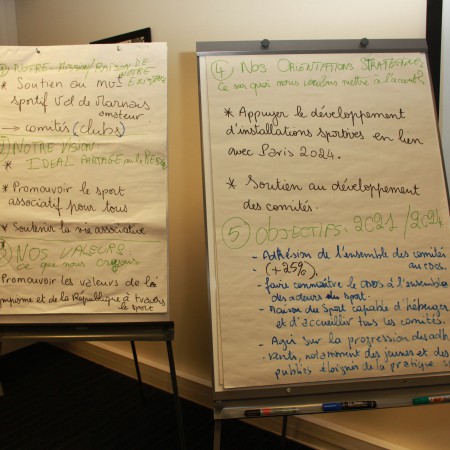 ① NOTRE MISSION/RAISON DE
NOTRE
EXISTENCE
* Soutien au mvt
sportif Val de Marnais
amateur
→ comités (clubs)
② NOTRE VISION
IDEAL PARTAGÉ par le RÉSEAU
* Promouvoir le sport
associatif pour tous
* Soutenir la vie associative
③ NOS VALEURS
ce que nous croyons
Promouvoir les valeurs de l'
olympisme et de la République à travers
le sport
④ NOS ORIENTATIONS STRATÉGIQUES
Ce sur quoi nous voulons mettre à l'accent
* Appuyer le développement
d'installations sportives en lien
avec Paris 2024.
* Soutien au développement
des comités.
⑤ OBJECTIFS: 2021/2024
- Adhésion de l'ensemble des comités
au CDOS.
- (+25%)
- faire connaître le CDOS à l'ensemble
des acteurs du sport.
- Maison du Sport capable d'héberger
et d'accueillir tous les comités.
- Agir sur la progression des adhé-
-rents, notamment des jeunes et des
publics éloignés de la pratique